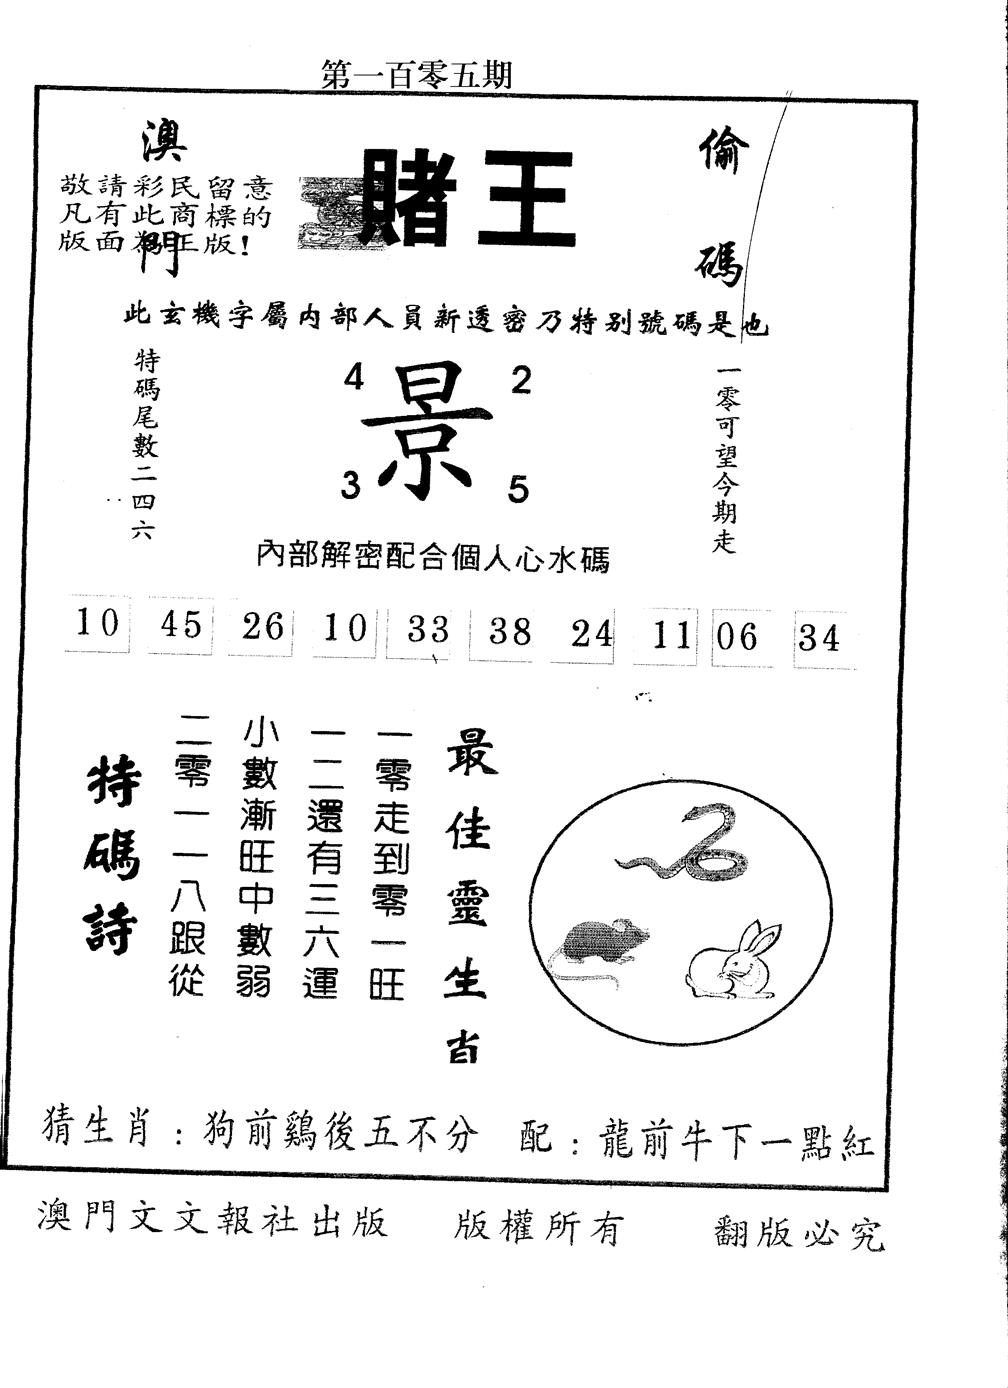 第一百零五期
澳門
敬請彩民留意
凡有此商標的
版面為正版!
賭王
偷碼
此玄機字屬内部人員新透密乃特别號碼是也
特碼尾數二四六
4 景 2
3 5
一零可望今期走
內部解密配合個人心水碼
10 45 26 10 33 38 24 11 06 34
最佳靈生肖
一零走到零一旺
一二還有三六運
小數漸旺中數弱
二零一一八跟從
特碼詩
猜生肖:狗前鷄後五不分 配:龍前牛下一點紅
澳門文文報社出版 版權所有 翻版必究